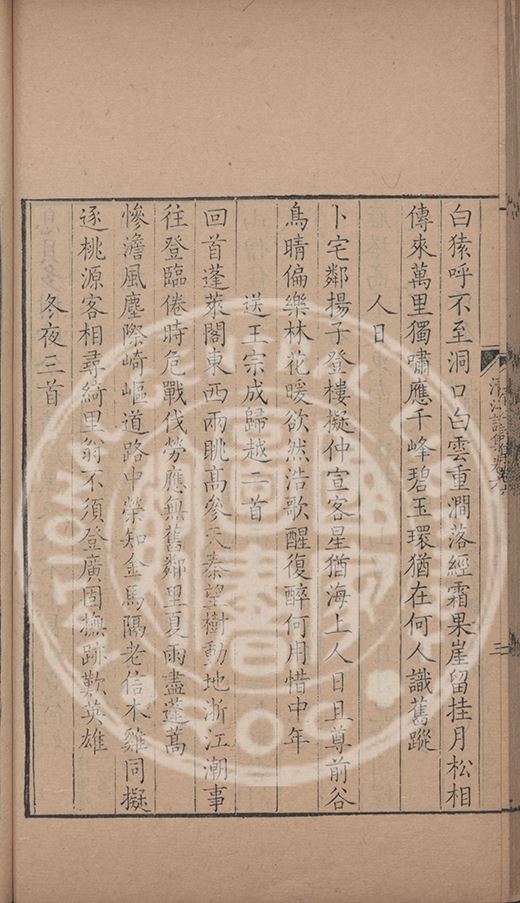 白猿呼不至洞口白雲重澗落經霜果崖留挂月松相
傳來萬里獨嘯應千峰碧玉環猶在何人識舊蹤
人日
卜宅鄰揚子登樓擬仲宣客星猶海上人日且尊前谷
鳥晴偏樂林花暖欲然浩歌醒復醉何用惜中年
送王宗成歸越二首
回首蓬萊閣東西兩眺高參天秦望樹動地浙江潮事
往登臨倦時危戰伐勞應無舊鄰里夏雨盡蓬蒿
慘澹風塵際崎嶇道路中榮知金馬隔老信木雞同擬
逐桃源客相尋綺里翁不須登廣固撫跡歎英雄
冬夜三首